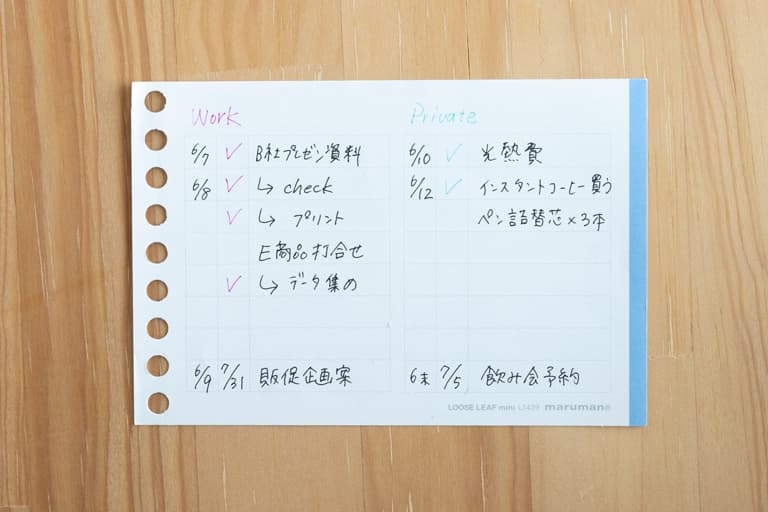 Work
6/7 ✓ B社プレゼン資料
6/8 ✓ ↳ check
✓ ↳ プリント
E商品打合せ
✓ ↳ データ集め
6/9 7/31 販促企画案
Private
6/10 ✓ 光熱費
6/12 ✓ インスタントコーヒー買う
ペン詰替芯×3本
6末 7/5 飲み会予約
LOOSE LEAF mini L1439 maruman®